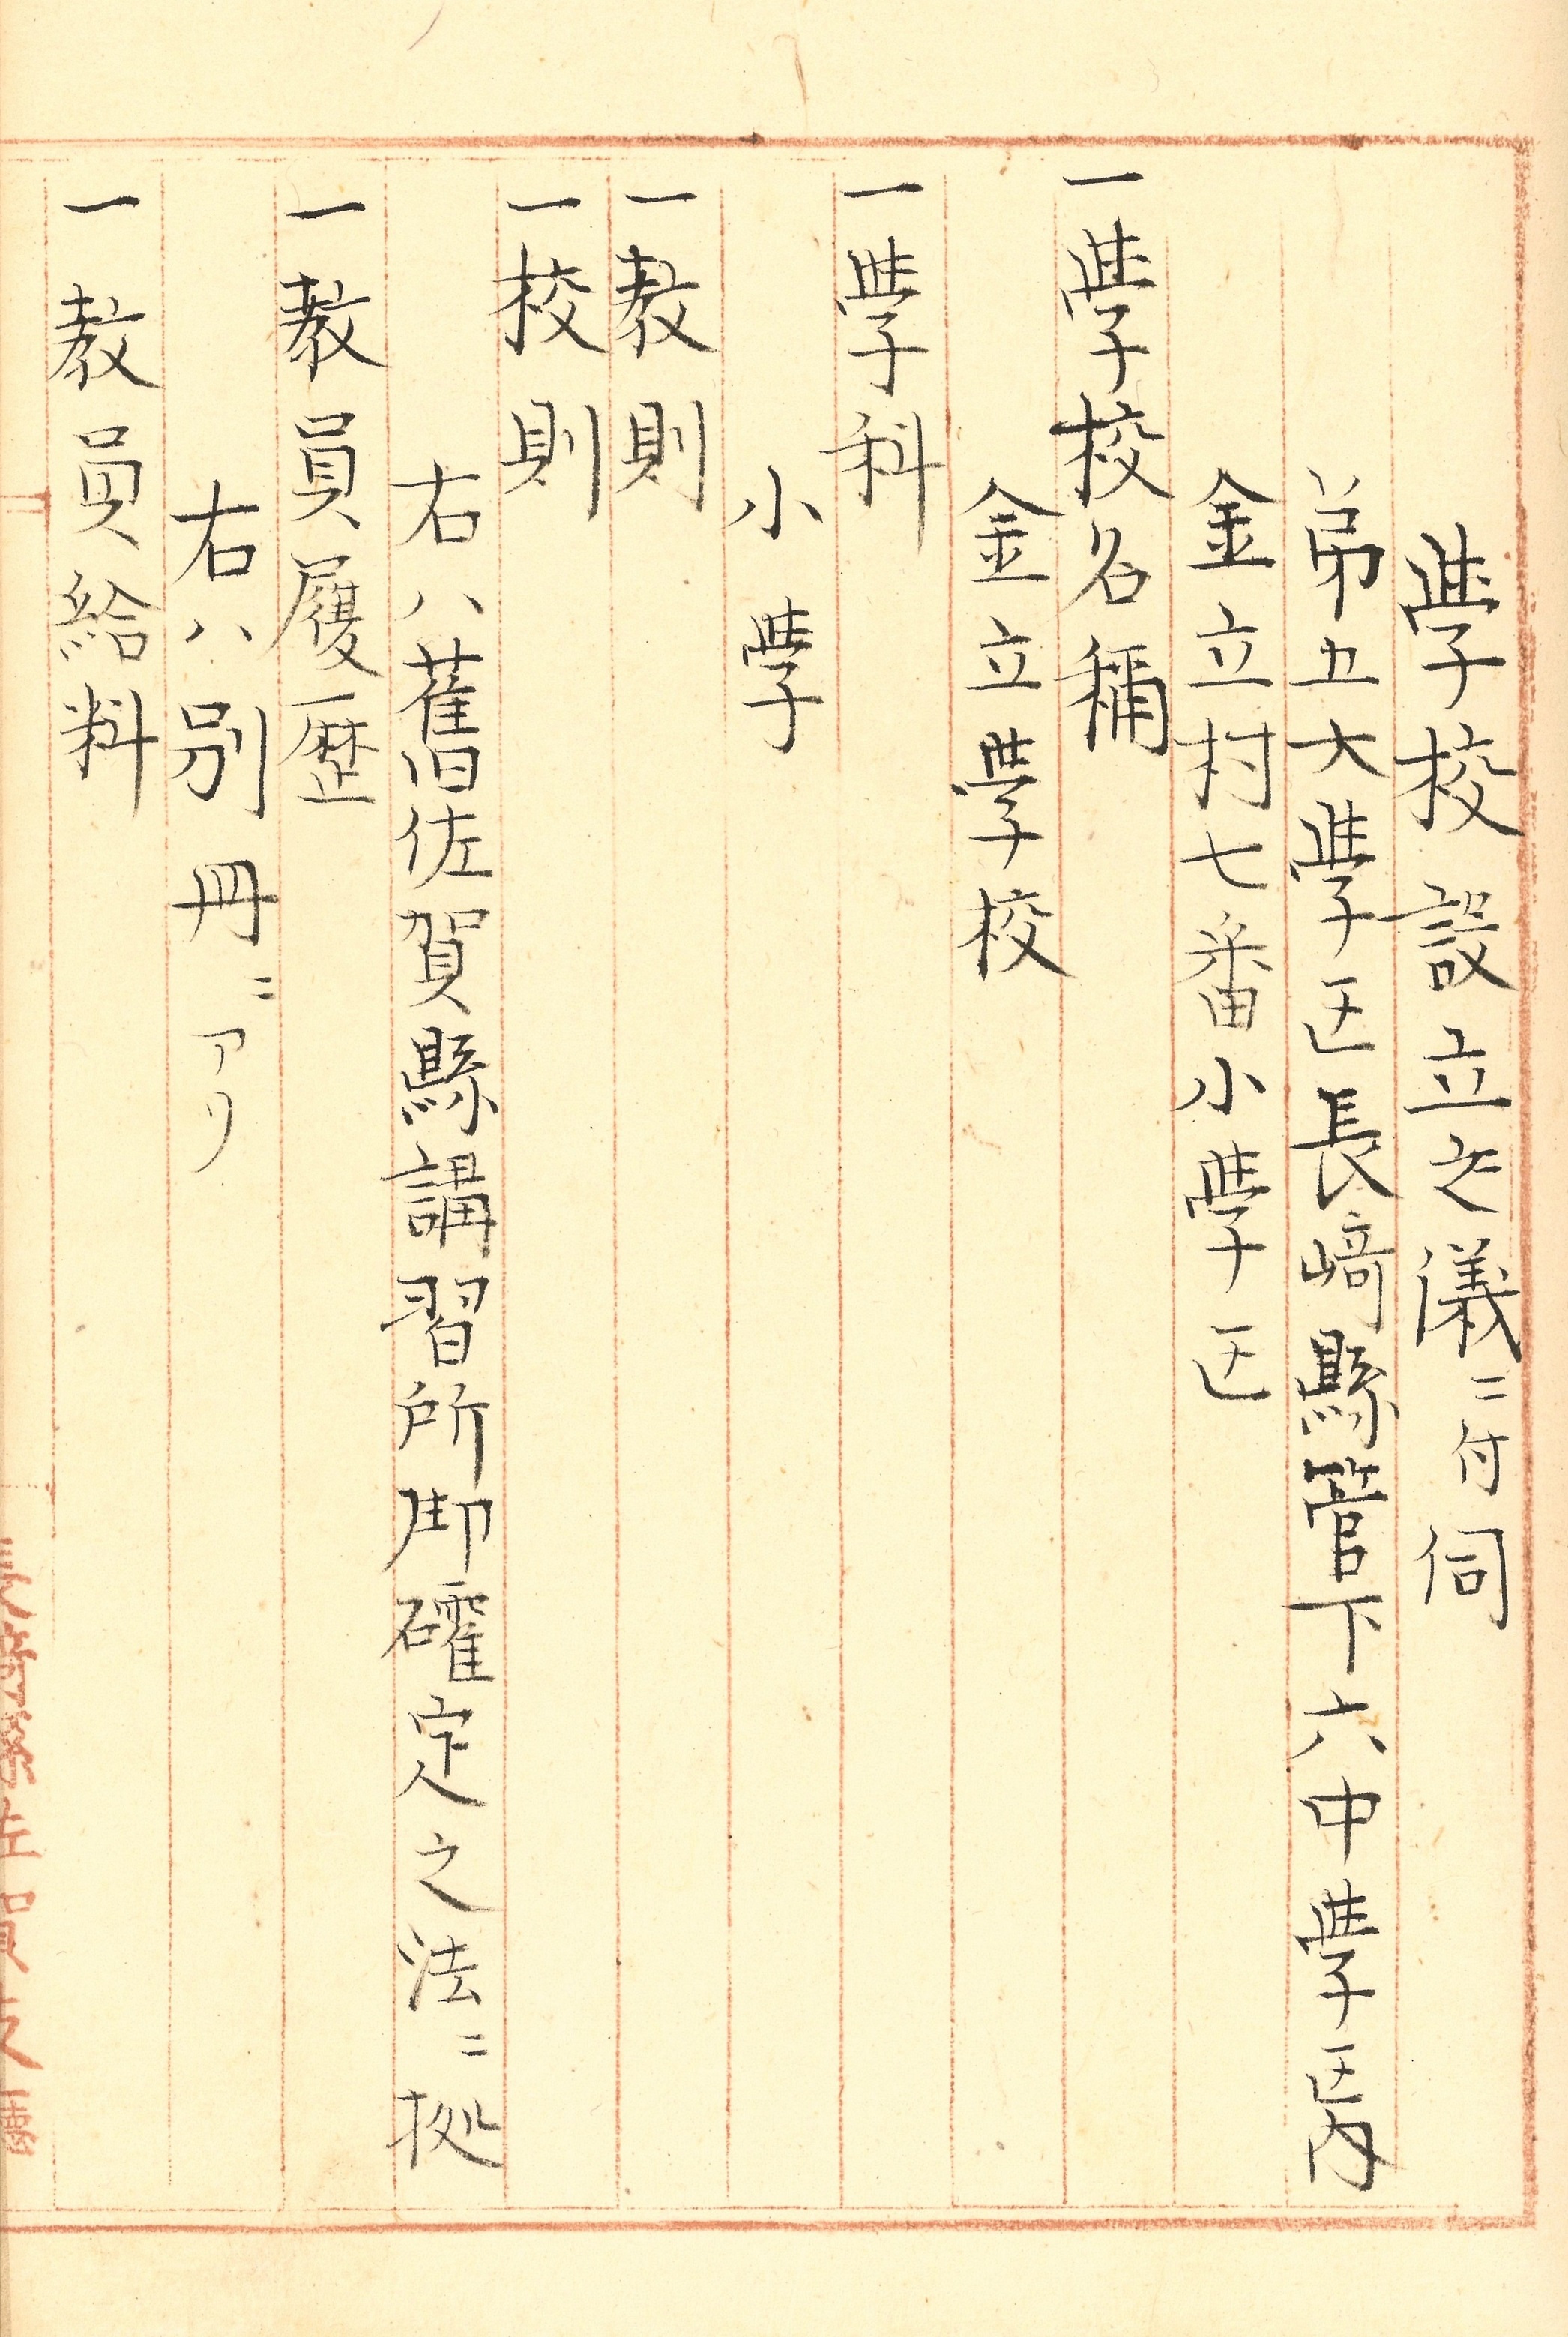 學校設立之儀ニ付伺
第五大學区長﨑縣管下六中學区内
金立村七番小學区
一學校名稱
金立學校
一學科
小學
一教則
一校則
右ハ舊佐賀縣講習所御確定之法ニ拠
一教員履歴
右ハ別冊ニアリ
一教員給料